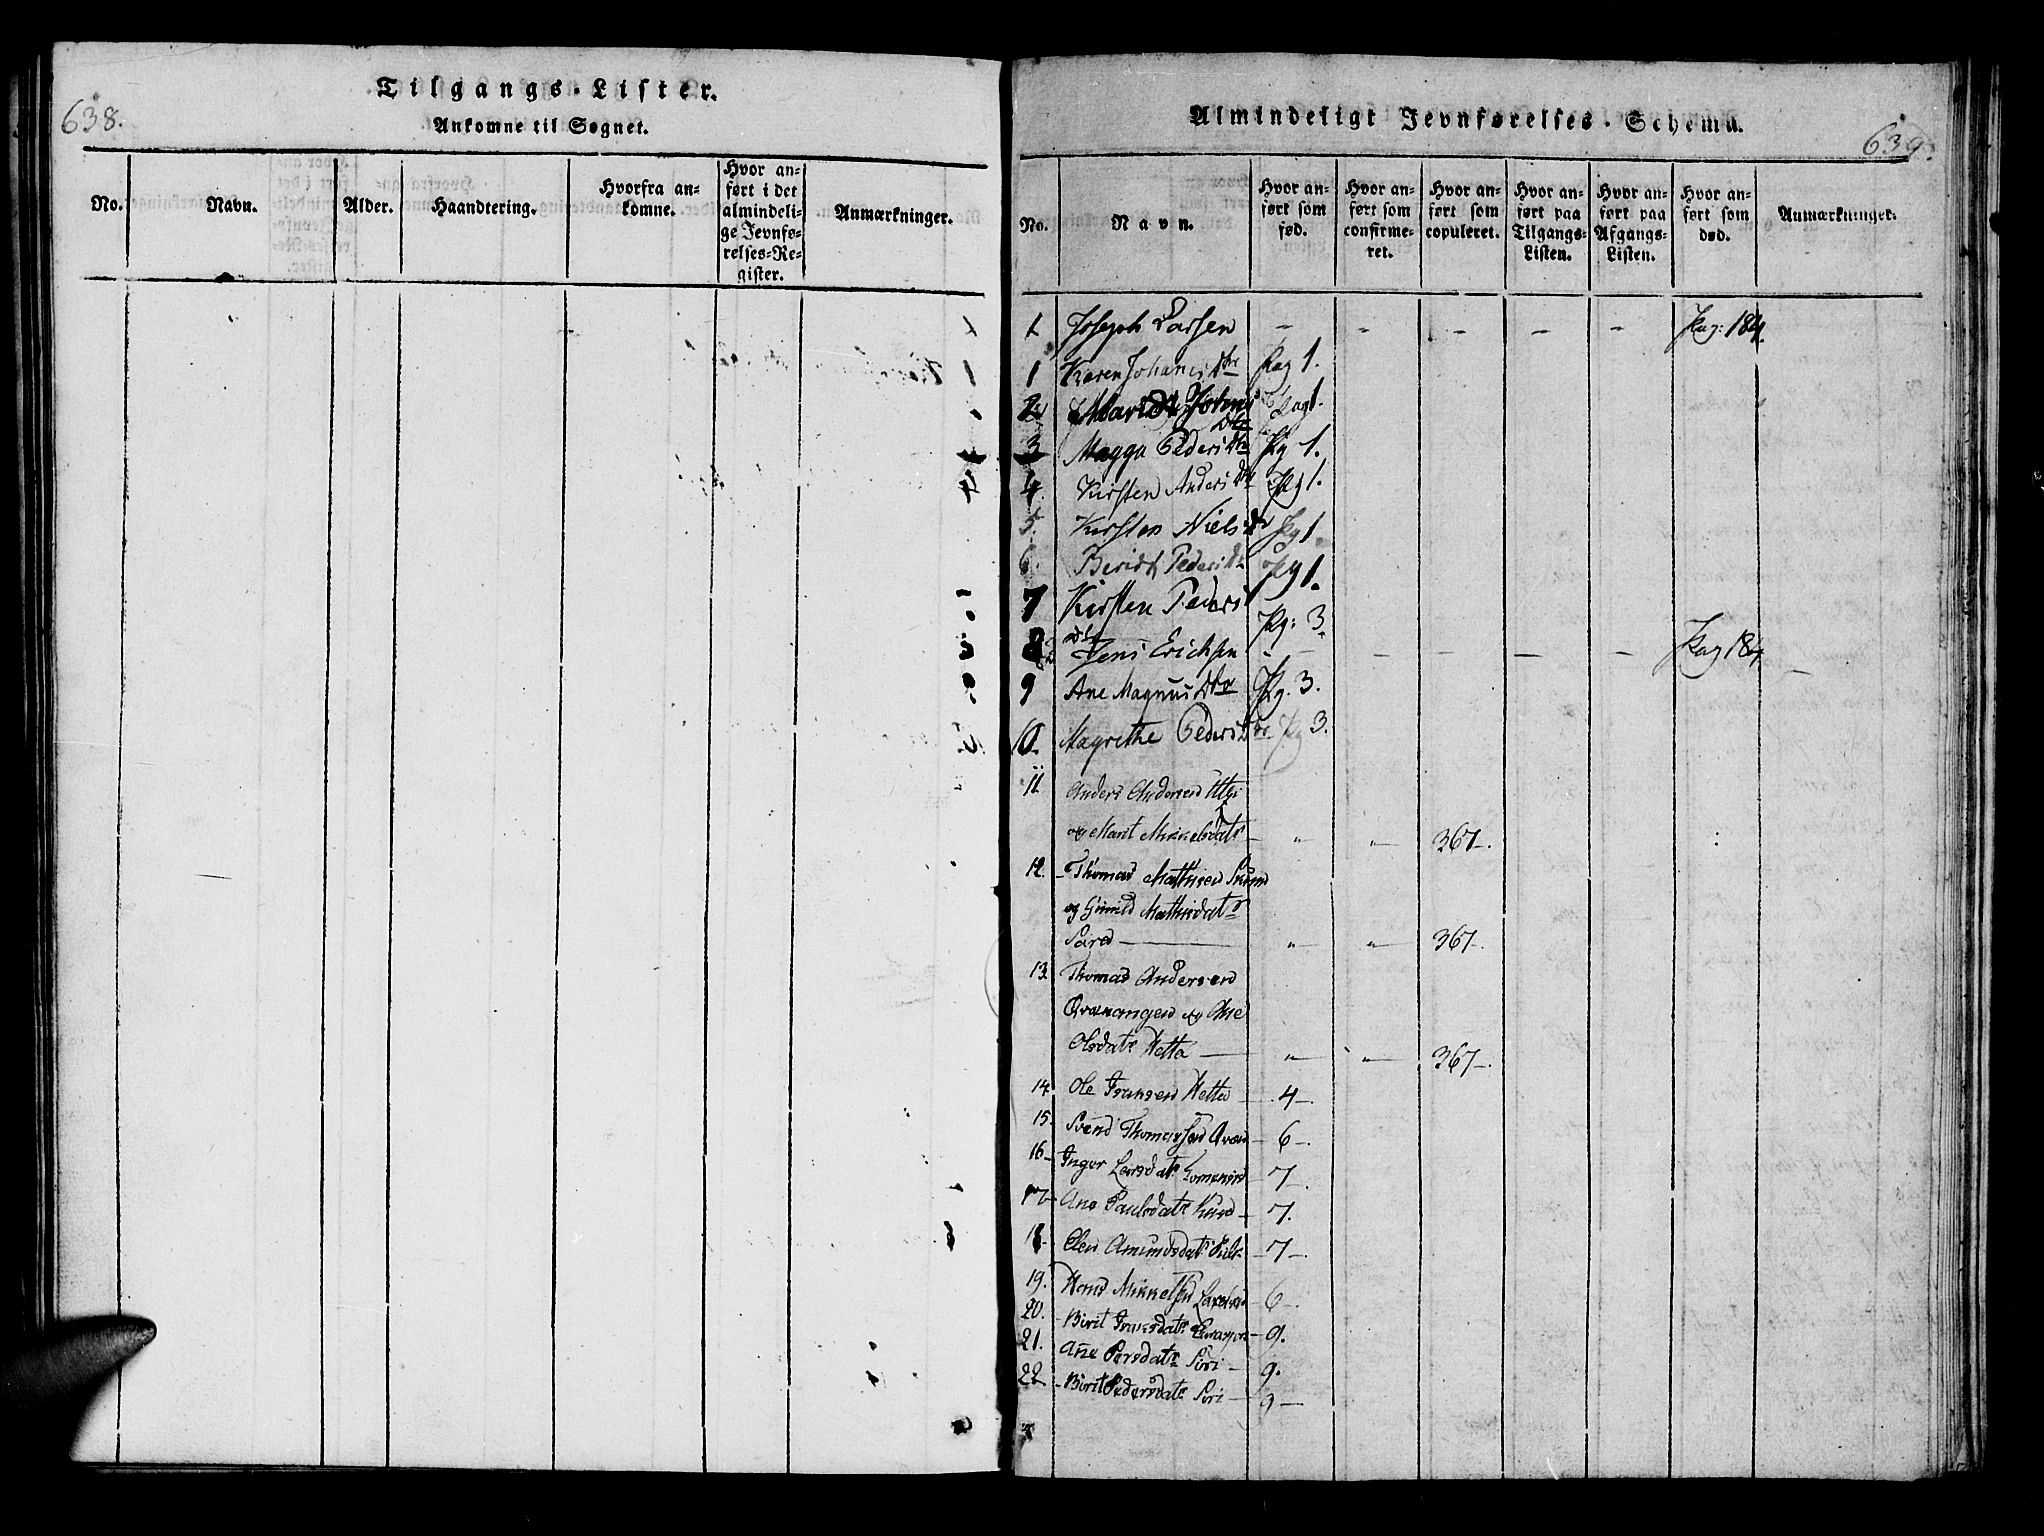 638.
Tilgangs-Lister.
Ankomne til Sognet.
No.
Navn.
Alder.
Haandtering.
Hvorfra an-
komne.
Hvor an-
ført i det
almindeli-
ge Jevnfø-
relses-Re-
gister.
Anmærkninger.
Almindeligt Jevnførelses-Schema.
639.
No.
Navn.
Hvor an-
ført som
fød.
Hvor an-
ført som
confirme-
ret.
Hvor an-
ført som
copuleret.
Hvor an-
ført paa
Tilgangs-
Listen.
Hvor an-
ført paa
Afgangs-
Listen.
Hvor an-
ført som
død.
Anmærkninger.
1 Joseph Larsen - - - - - Pag: 184.
1 Karen Johanes Dtr Pag 1.
2 Maridt Dtr Pag 1.
3 Magga Peders Dtr Pg 1.
4. Kirsten Anders Dtr Pg 1.
5. Kirsten Niels Dr Pg 1.
6. Beridt Peders Dr Pg 1.
7 Kirsten Peders
dtr Pg: 3.
8 Jens Erichsen - - - - - Pag 184 -
9 Ane Magnus Dtr Pg. 3.
10. Magrethe Peders Dtr Pg 3.
11 Anders Andersen
og Marit Mikkelsdatr - " - " - 367-.
12. Thomas Mathisen
og Gunild Mathisdatr
" - " - 367-.
13. Thomas Andersen
Qvænangen og Ane
Olsdatr Hetta - " - " - 367-.
14. Ole Fransen Hetta - 4-.
15. Svend Thomassen - 6-.
16- Inger Larsdatr - 7-.
17- Ane Paulsdatr - 7.
18. Elen Amundsdatr - 7-.
19. Hans Mikkelsen - 6-.
20. Birit Fransdatr - 9.
21. Ane Persdatr Siri - 9.
22 - Birit Pedersdatr Siri - 9-